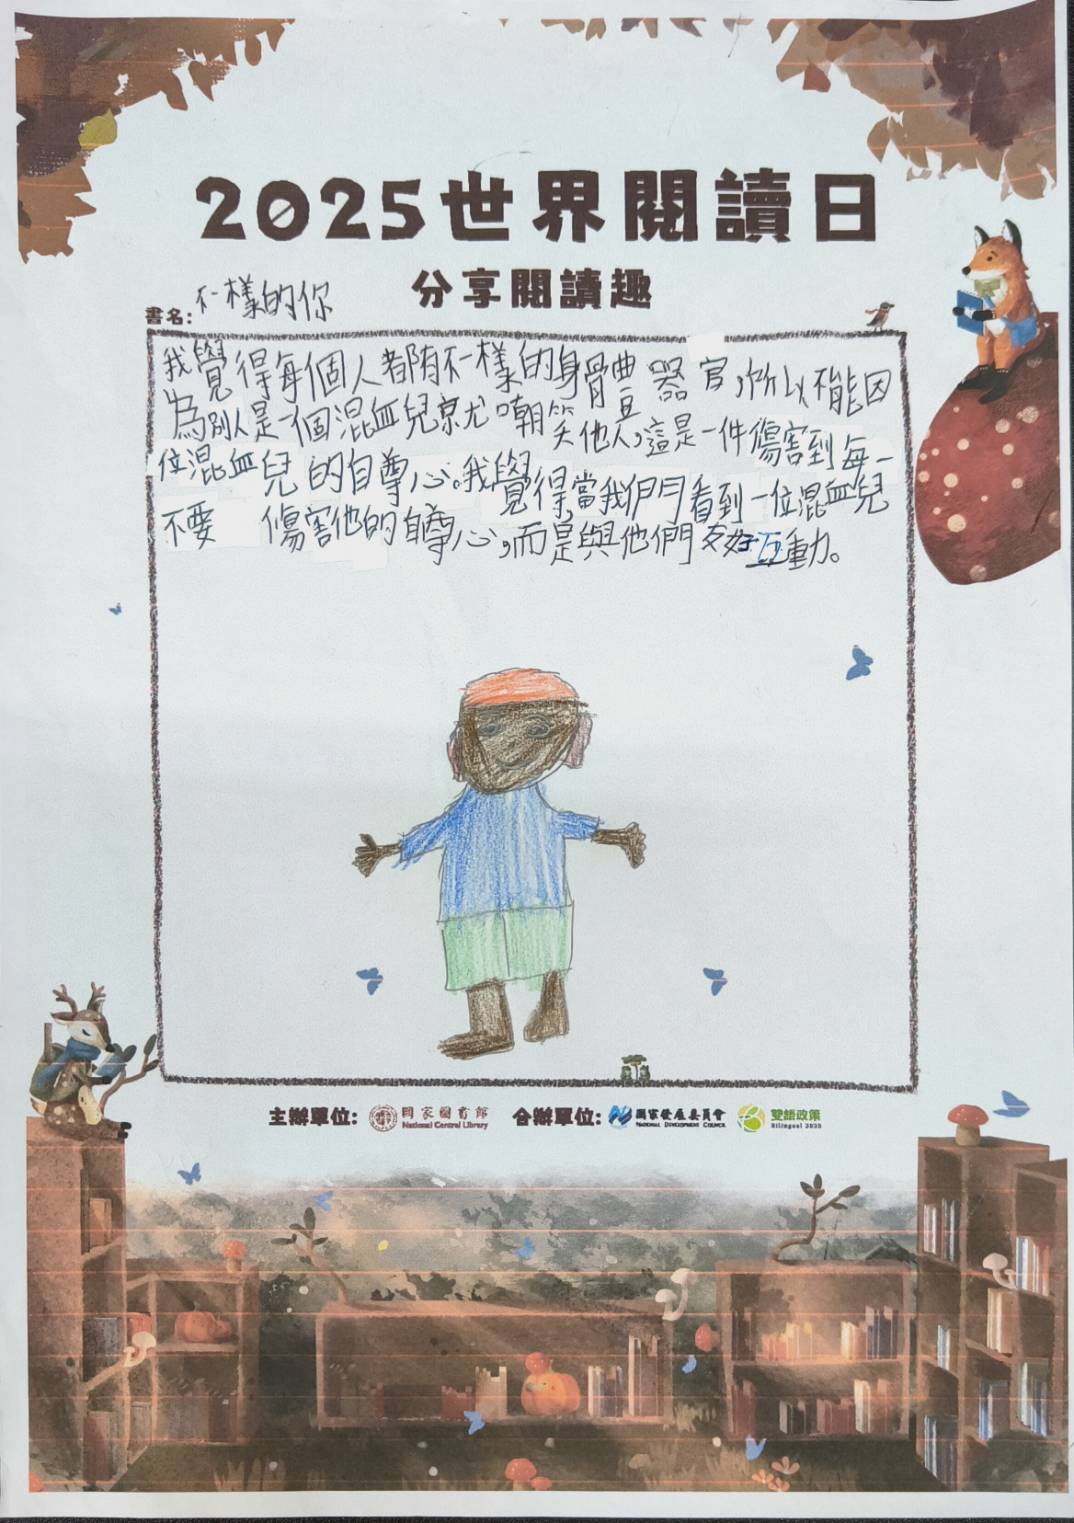 2025世界閱讀日
分享閱讀趣
書名:不一樣的你
我覺得每個人都有不一樣的身體器官,所以不能因
為別人是一個混血兒就嘲笑他人,這是一件傷害到每一
位混血兒的自尊心。我覺得當我們看到一位混血兒
不要 傷害他的自尊心,而是與他們友好互動。
主辦單位: 國家圖書館 合辦單位: 國家發展委員會 雙語政策
National Central Library NATIONAL DEVELOPMENT COUNCIL Bilingual 2030